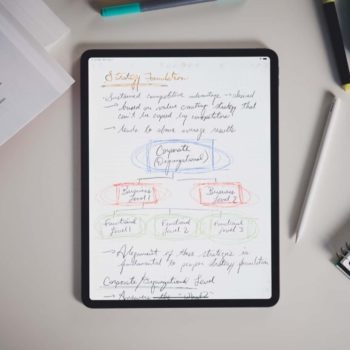 Strategy Foundation
→ Sustained competitive advantage → shared
→ based on value creating strategy that
can't be copied by competitors
→ leads to above average results
Corporate
(Organizational)
Business
Level 1
Business
Level 2
Functional
Level 1
Functional
Level 2
Functional
Level 3
→ Alignment of these strategies is
fundamental to proper strategy foundation
Corporate/Organizational Level
→ Answers the "What"